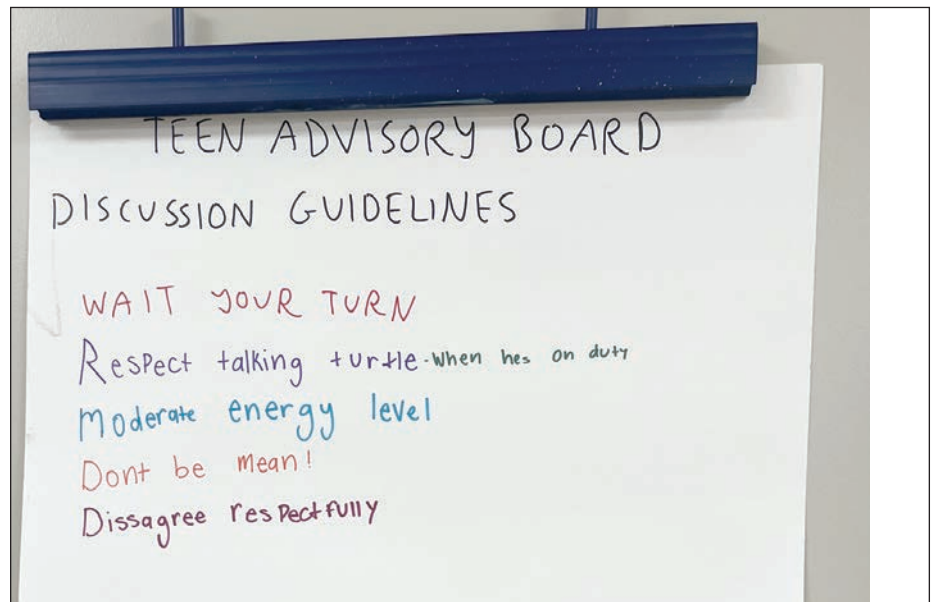 TEEN ADVISORY BOARD
DISCUSSION GUIDELINES
WAIT YOUR TURN
Respect talking turtle - When hes on duty
Moderate energy level
Dont be mean!
Dissagree respectfully